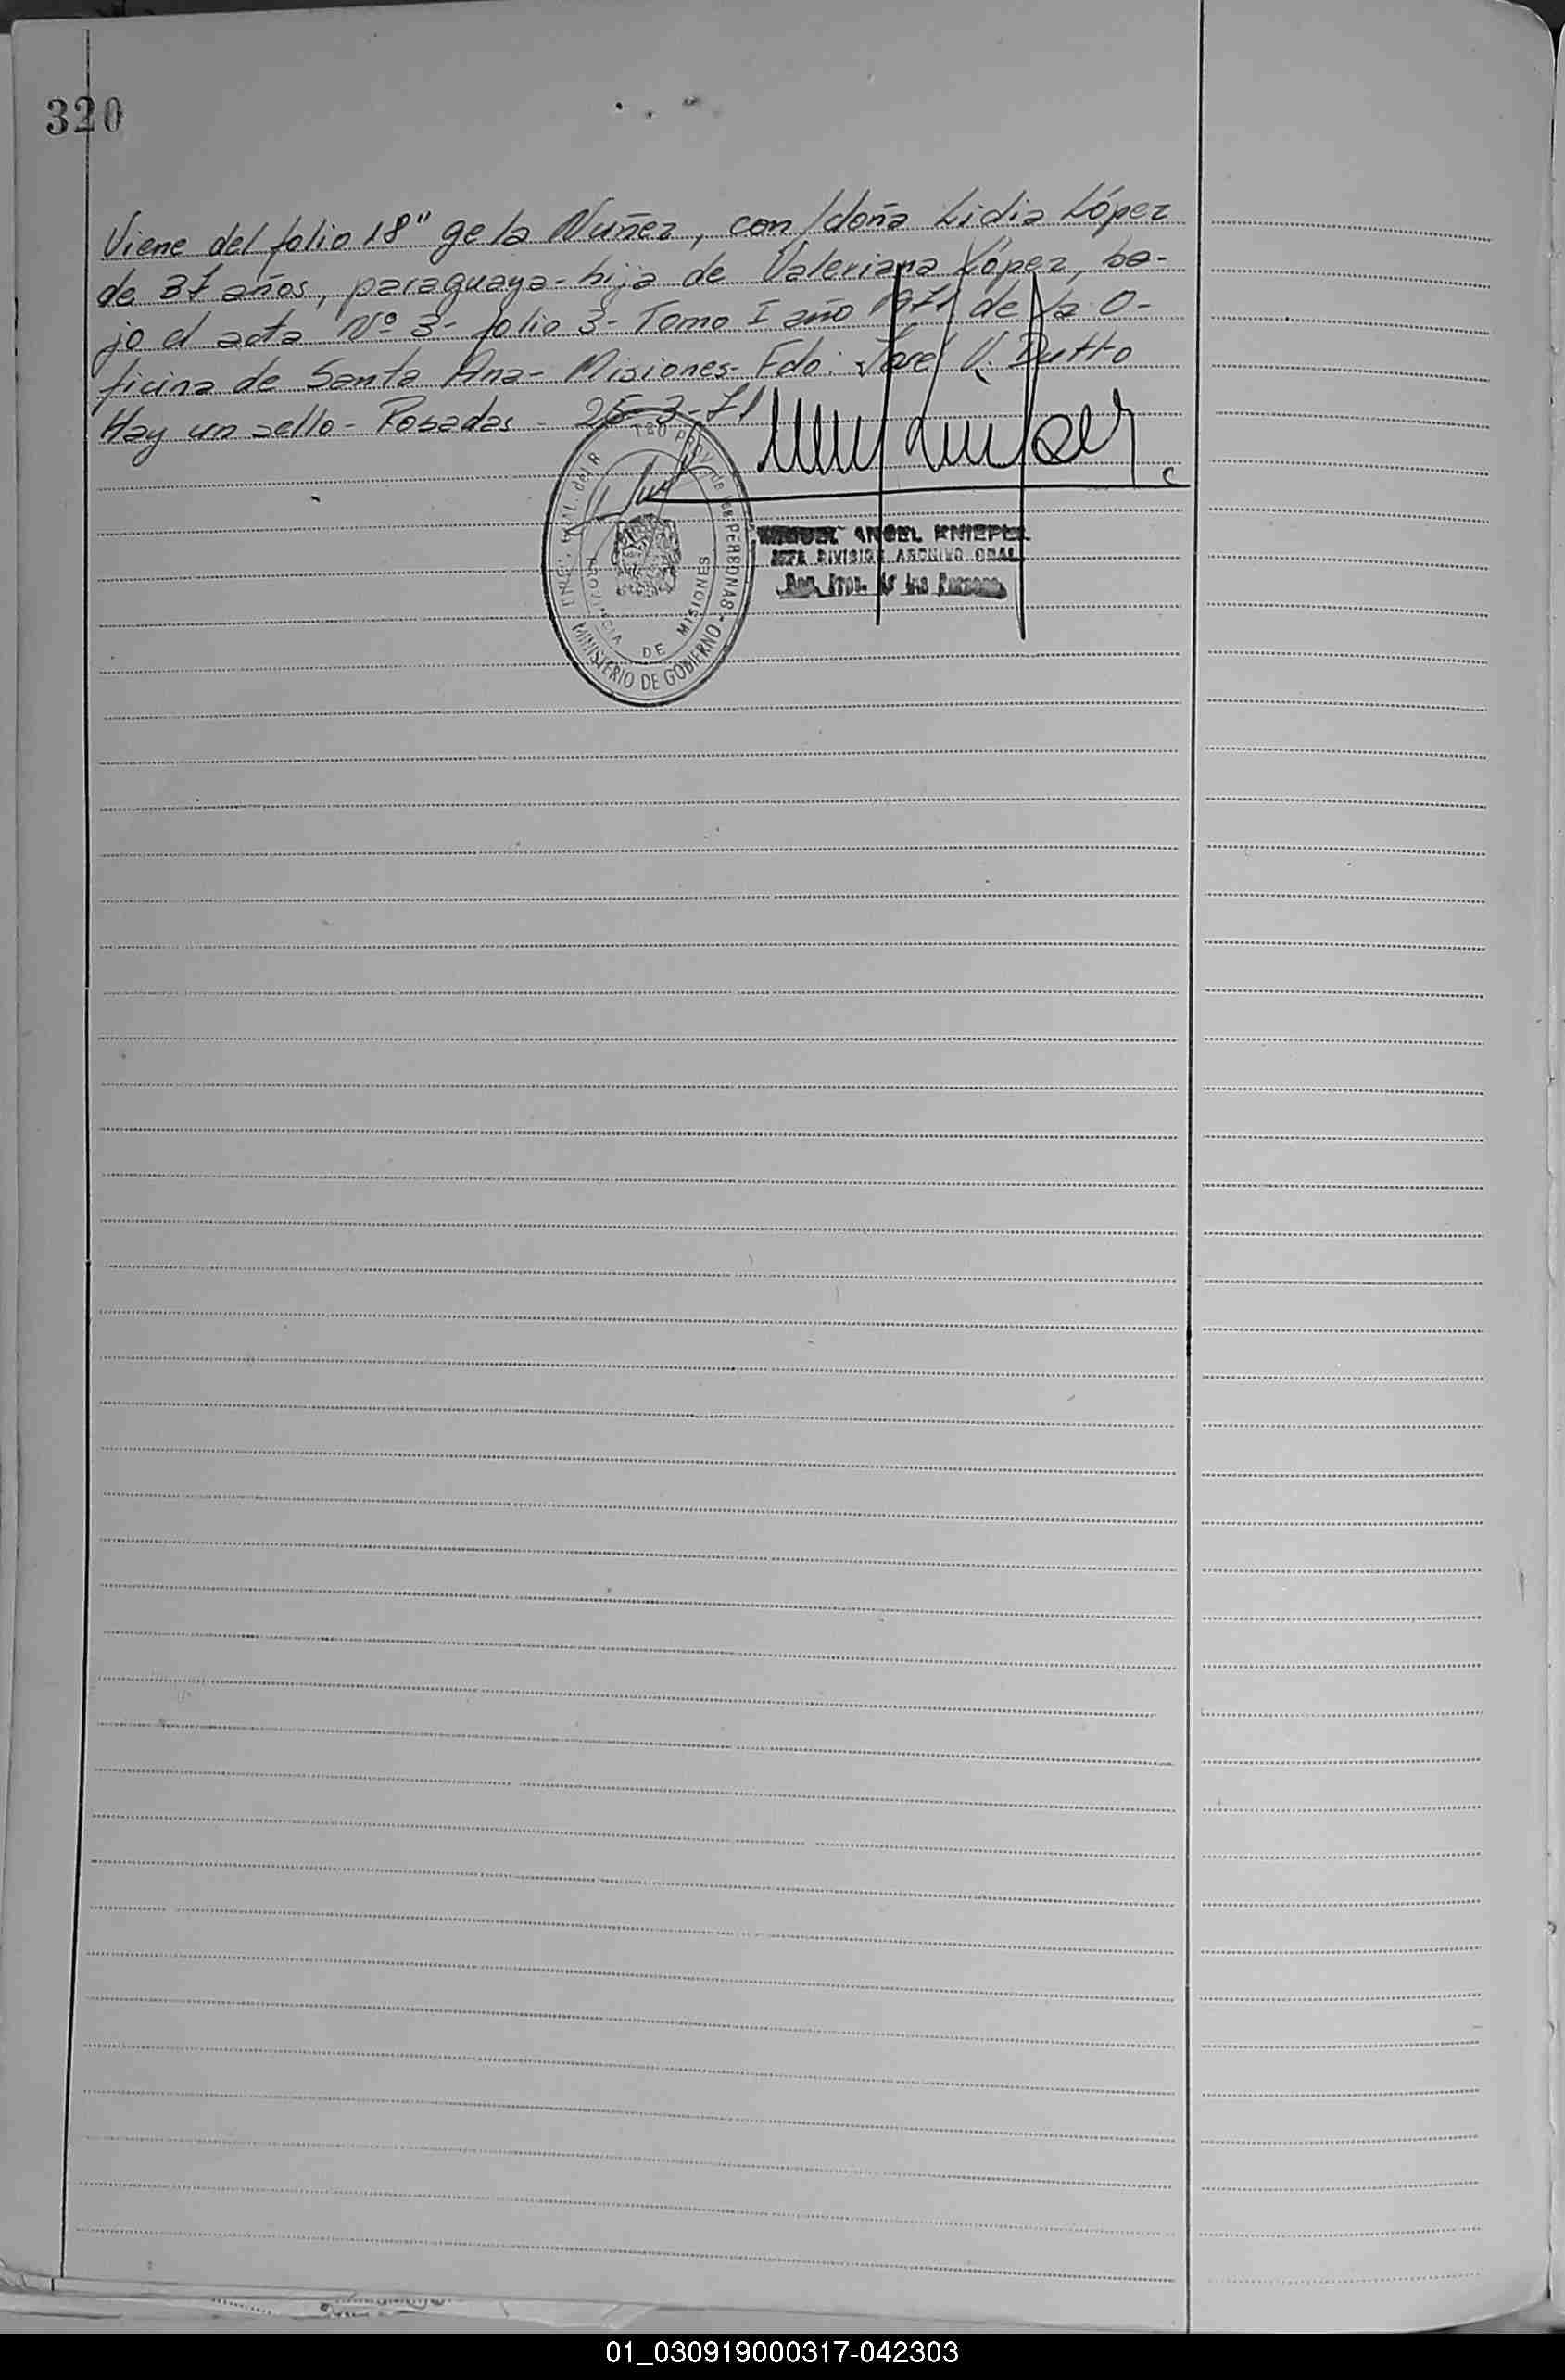 320
Viene del folio 18" ge la Nuñez, con doña Lidia López
de 37 años, paraguaya - hija de Valeriana López, ba-
jo el acta Nº 3 - folio 3 - Tomo I año 1971 de la O-
ficina de Santa Ana - Misiones - Fdo: José V. Dutto
Hay un sello - Posadas - 25-3-71
PROVINCIA DE MISIONES
MINISTERIO DE GOBIERNO
de las PERSONAS
MIGUEL ANGEL KNIEPLE
JEFE DIVISION ARCHIVO GRAL
Reg. Prov. de las Personas
01_030919000317-042303